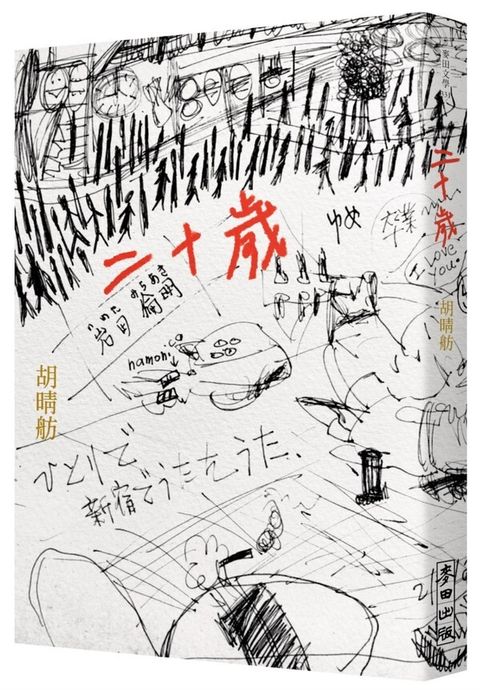 二十歲
ゆめ
いわた みちあき
岩田 倫明
namoni
胡晴舫
ひとりで
新宿でうたをうた、
麥田文學
二十歲
卒業
I LOVE YOU
胡晴舫
麥田出版